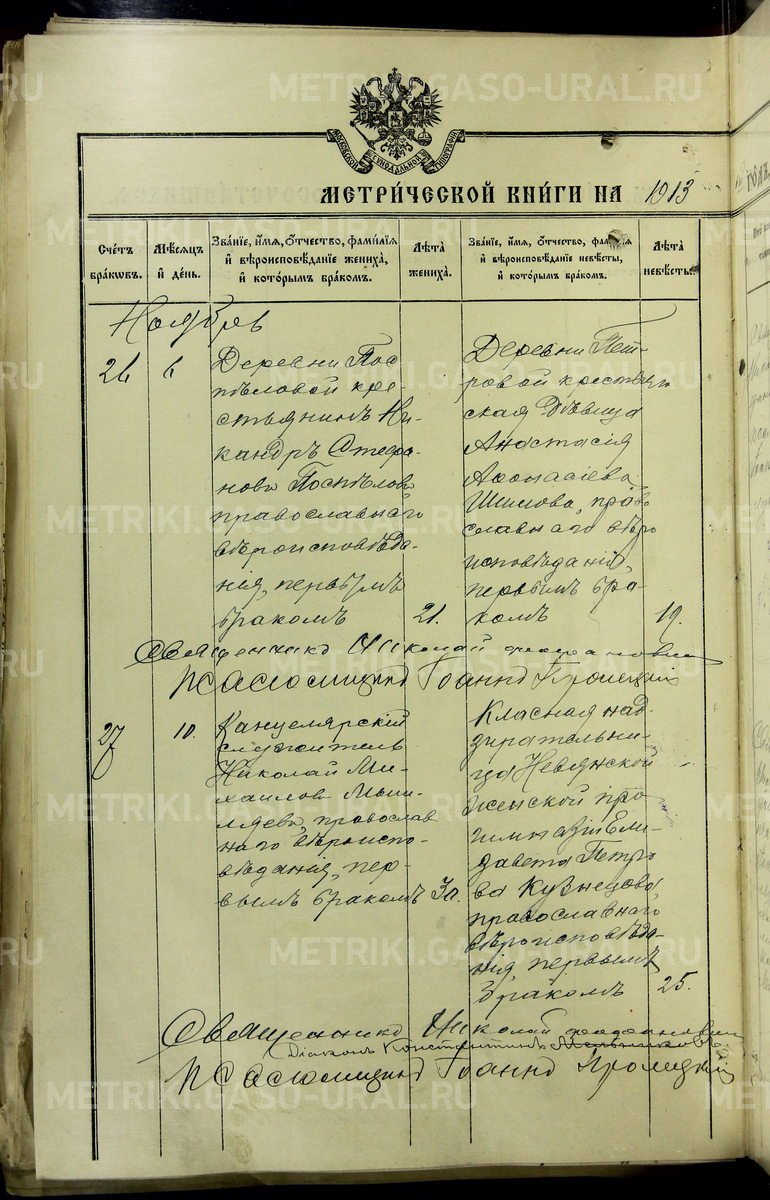 METRIKI.GASO-URAL.RU
МОСКОВСКОЙ СѴНОДАЛЬНОЙ ТИПОГРАФІИ
МЕТРИ́ЧЕСКОЙ КНИ́ГИ НА 1913
Сче́тъ бра́ковъ.
Мѣ́сяцъ и҆ де́нь.
Зва́нїе, и҆́мя, ѻ҆́тчество, фами́лїя и҆ вѣроисповѣ́данїе жениха̀, и҆ кото́рымъ бра́комъ.
Лѣ́та жениха̀.
Зва́нїе, и҆́мя, ѻ҆́тчество, фами́лїя и҆ вѣроисповѣ́данїе невѣ́сты, и҆ кото́рымъ бра́комъ.
Лѣ́та невѣ́сты.
Ноябрь
26
6
Деревни Пос
пѣловой кре-
стьянинъ Ни-
кандръ Стефа-
новъ Поспѣловъ
православнаго
вѣроисповѣда-
нія, первымъ
бракомъ
21.
Деревни Пет-
ровой крестьян
ская дѣвица
Анастасія
Аѳонасіева
православнаго вѣро
исповѣданія,
первымъ бра-
комъ
19.
Священникъ Николай
Псаломщикъ Іоаннъ Троицкій
27
10.
Канцелярскій
служитель
Николай Ми-
хаиловъ
православ
наго вѣроиспо-
вѣданія, пер-
вымъ бракомъ
30.
Класная над
зирательни-
ца Невьянской
женской про
гимназіи Ели-
завета Петро
ва Кузнецова,
православнаго
вѣроисповѣда-
нія, первымъ
бракомъ
25.
Священникъ Николай
Діаконъ Константинъ
Псаломщикъ Іоаннъ Троицкій